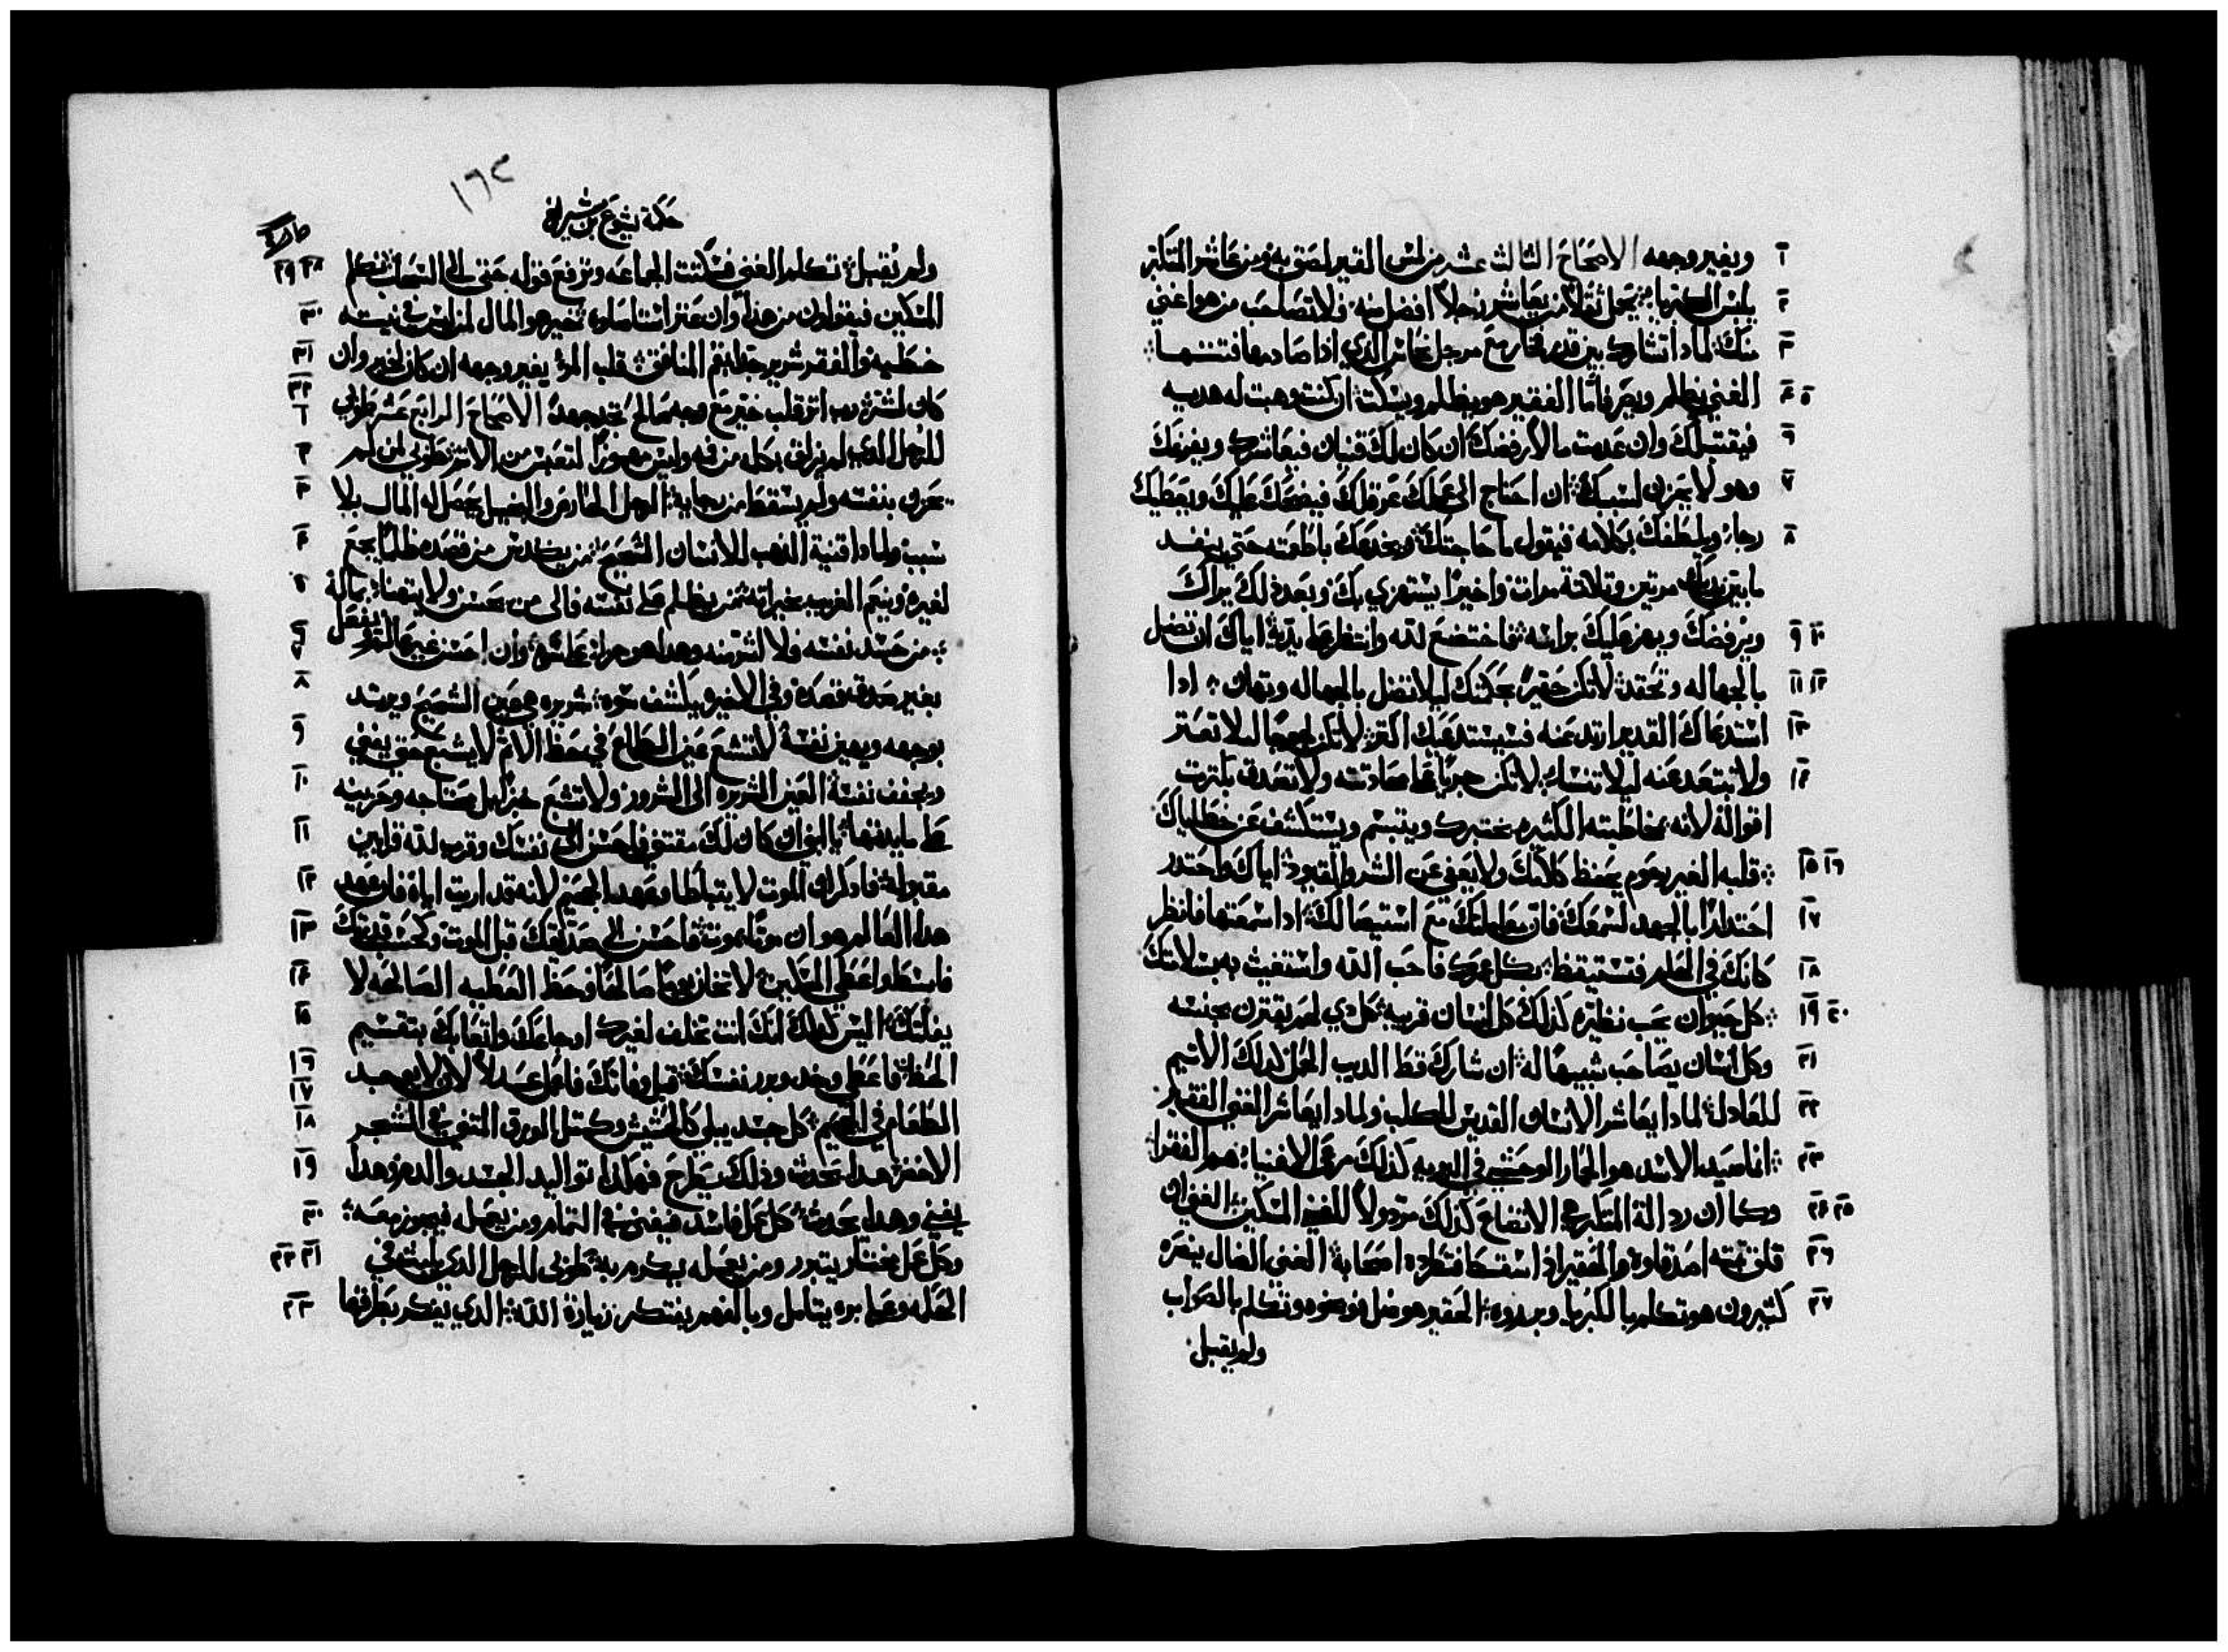 ويغير وجهه الاصحاح الثالث عشر من لمس القير لصق به ومن عاشر المتكبر ٦
يلبس الكبريا يحمل ثقلاً من يعاشر رجلاً افضل منه فلا تصاحب من هو اغنى ٢
منك لماذا تشارك بين قدر فخار مع مرجل نحاس الذي اذا صادمها فتنها ٣
الغني يظلم ويصر فاما الفقير هو يظلم ويسكت ان كنت وهبت له هديه ٤ ٥
فيقتبلك وان عدمت مالاً رفضك ان كان لك قنيان فيعاشرك ويفرغك ٦
وهو لا يحزن لسببك ان احتاج الى عملك عرقلك فيضحك عليك ويعطيك ٧
رجاء ويلطفك بكلامه فيقول ما حاجتك ويخدعك باطعمته حتى ينفد ٨
ما بيدك مرتين وتلاتة مرات واخيراً يستهزي بك وبعد ذلك يراك
ويرفضك ويهز عليك براسه فاختضع لله وانتظر يديه اياك ان تضل ٩ ١٠
بالجهاله وتحقد لا تكن حقيراً بحكمتك ليلا تضل بالجهاله وتهان اذا ١١ ١٢
استدعاك القدير ابتد عنه فسيستدعيك اكثر لا تكن لجوجاً ليلا تعتر ١٣
ولا تبتعد عنه ليلا تنسا لا تكن جرياً محادثته ولا تصدق بكترت ١٤
اقواله لانه بمخاطبته الكثيره يختبرك ويتبسم ويستكشف عن خطاياك
قلبه الغير رحوم يحفظ كلامك ولا يعفى عن الشر والقيود اياك واحتدر ١٥ ١٦
احتداراً بالجهد لسمعك فان معاملتك مع استيصالك اذا سمعتها فانظر ١٧
كانك في الحلم فتستيقظ بكل عمرك فاحب الله واستغيث به بسلامتك ١٨
كل حيوان يحب نظيره كذلك كل انسان قريبه كل ذي لحم يقترن بجنسه ١٩ ٢٠
وكل انسان يصاحب شبيهاً له ان شارك قط الديب الحمل كذلك الاثيم ٢١
للعادل لماذا يعاشر الانسان القديس للكلب ولماذا يعاشر الغني الفقير ٢٢
انما صيد الاسد هو الحمار الوحشي في البريه كذلك مرعى الاغنياء هم الفقرا ٢٣
وكما ان رذالة المتكبر هي الاتضاع كذلك مرذولاً للغني المسكين الغني ان ٢٤ ٢٥
قلق تبته اصدقاوه والحقير اذا سقط فتطرده اصحابه الغني الضال ينصره ٢٦
كتيرون هو تكلم بالكبريا وبرروه الحقير هو ضل فوبخوه هو تكلم بالصواب ٢٧
ولم يقبل
١٦٢
حكمة يشوع بن شيراخ
ولم يقبل تكلم الغني فسكتت الجماعه وترفع قوله حتى الى السحاب تكلم ٢٨ ٢٩
المسكين فيقولون من هذا وان عتر استاصلوه خير هو المال لمن ليس في نيته ٣٠
خطيه والفقر شرير جداً بفم المنافق قلب المرء يغير وجهه ان كان لخير وان ٣١
كان لشر اتر قلب خير مع وجه صالح تجد بجهد الاصحاح الرابع عشر طوبى ٣٢ ٦
للرجل الذي لم يزلق بكل من فيه وليس محزوناً لتعبس من الاتم طوبى لمن لم ٢
يحزن بنفسه ولم يسقط من رجايه الرجل الحازم والبخيل يحصل له المال بلا ٣
سبب ولماذا قنية الذهب للانسان الشحيح من يكدس من قصده ظلماً يجمع ٤
لغيره وينعم الغريب بخيراته من يظلم على نفسه فالى من يحسن ولا يتهنا بماله ٥
من حسد نفسه فلا اشر منه وهذا هو جزاء على شره وان احسن غير عالم يفعل ٦ ٧
بغير قصده وفي الاخير يكشف سوه شريره هي عين الشحيح ويرتد ٨
بوجهه ويهين نفسه لا تشبع عين الطماع في حظ الاتم لا يشبع حتى يفني ٩
ويجفف نفسه العين الشريره الى الشرور ولا تشبع خبزاً بل محتاجه وحزينه ١٠
على مايدتها يا ابني ان كان لك مقتنى فاحسن الى نفسك وقرب لله قرابين ١١
مقبوله فادكر ان الموت لا يتباطا وعهد الجحيم لانه قد اريت اياه فان عهد ١٢
هذا العالم هو ان موتاً يموت فاحسن الى صديقك قبل الموت وكحسب قدرتك ١٣
فابسط واعطي المسكين لا تخاز يوماً صالحاً وحظ العطيه الصالحه لا ١٤
يفلتك اليس كذلك انك انت تخلف لغيرك اوجاعك واتعابك بتقسيم ١٥
الحظ فاعطي وخد وبرر نفسك قبل وفاتك فاعمل عدلاً لان لا يوجد ١٦ ١٧
الطعام في الجحيم كل جسد يبلى كالحشيش وكمتل الورق التي في الشجر ١٨
الاخضر هذا يحدث وذلك يطرح فهكذا تواليد الجسد والدم وهذا ١٩
يفني وهذا يحدث كل عمل فاسد فيفنى في التمام ومن يعمله فيجوز معه ٢٠
وكل عمل مختار يتبرر ومن يعمله يكرم به طوبى للرجل الذي يلبث في ٢١ ٢٢
الحكمه وعدل بره يتامل وبالفهم يفتكر زيارة الله الذي يفكر بطرقها ٢٣